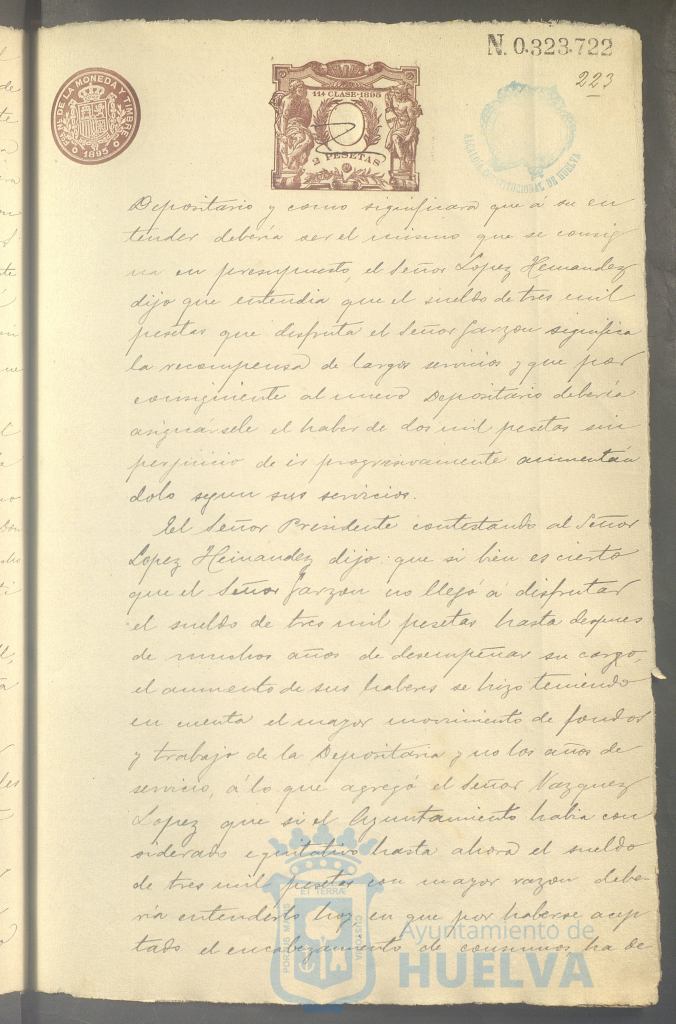 N. 0.323.722
223
FAB. DE LA MONEDA Y TIMBRE
1895
11ª CLASE-1895
2 PESETAS
ALCALDIA CONSTITUCIONAL DE HUELVA
Depositario y como significara que á su en
tender deberia ser el mismo que se consig
na en presupuesto, el Señor Lopez Hernandez
dijo que entendia que el sueldo de tres mil
pesetas que disfruta el Señor Garzon significa
la recompensa de largos servicios y que por
consiguiente al nuevo Depositario deberia
asignársele el haber de dos mil pesetas sin
perjuicio de ir progresivamente aumentán
dolo segun sus servicios.
El Señor Presidente contestando al Señor
Lopez Hernandez dijo: que si bien es cierto
que el Señor Garzon no llegó á disfrutar
el sueldo de tres mil pesetas hasta despues
de muchos años de desempeñar su cargo,
el aumento de sus haberes se hizo teniendo
en cuenta el mayor movimiento de fondos
y trabajo de la Depositaria y no los años de
servicio, á lo que agregó el Señor Vazquez
Lopez que si el Ayuntamiento habia con
siderado equitativo hasta ahora el sueldo
de tres mil pesetas con mayor razon debe-
ría entenderlo hoy en que por haberse acep
tado el encabezamiento de consumos, ha de
PORTUS MARIS ET TERRÆ CUSTODIA
Ayuntamiento de
HUELVA